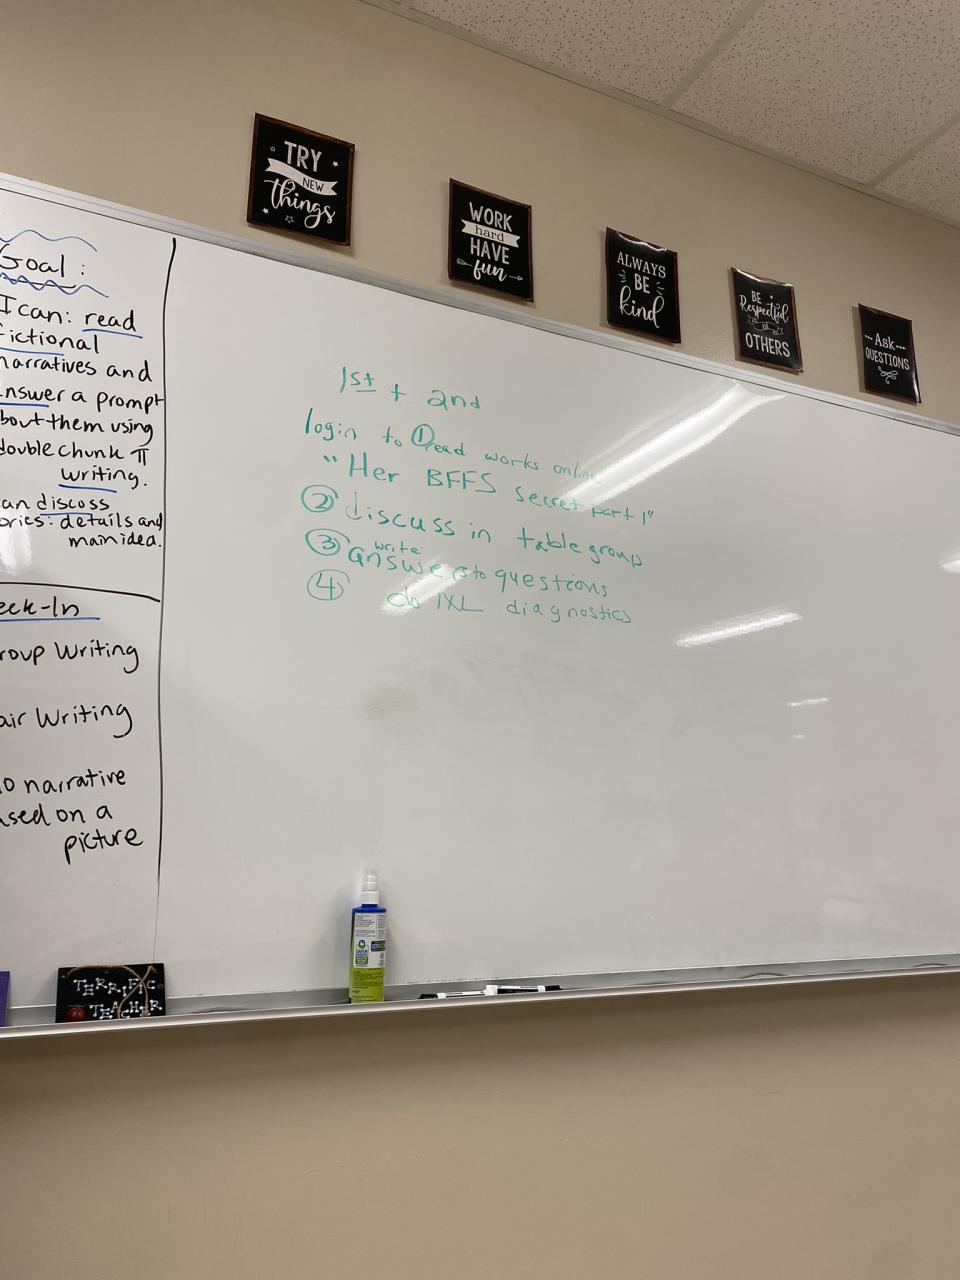 TRY
NEW
things
WORK
hard
HAVE
fun
ALWAYS
BE
kind
BE
Respectful
of
OTHERS
Ask
QUESTIONS
Goal:
I can: read
fictional
narratives and
answer a prompt
about them using
double chunk
writing.
can discuss
stories: details and
main idea.
eck-In
roup Writing
air Writing
narrative
ased on a
picture
1st + 2nd
login to ① Read works online
"Her BFFS Secret part 1"
② discuss in table group
write
③ answers to questions
④ do IXL diagnostics
TERRIFIC
TEACHER